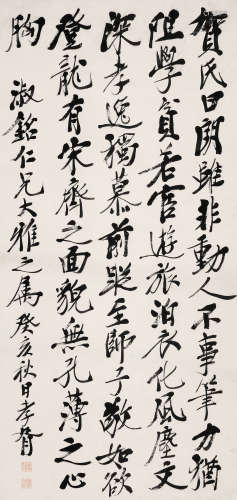 賀氏日閑雖非動人不事筆力猶
阻學貞若官遊旅泊衣化風塵文
深孝逸獨慕前蹤至師子敬如欲
登龍有宋齊之面貌無孔薄之心
胸
淑銘仁兄大雅之屬癸亥秋日孝胥